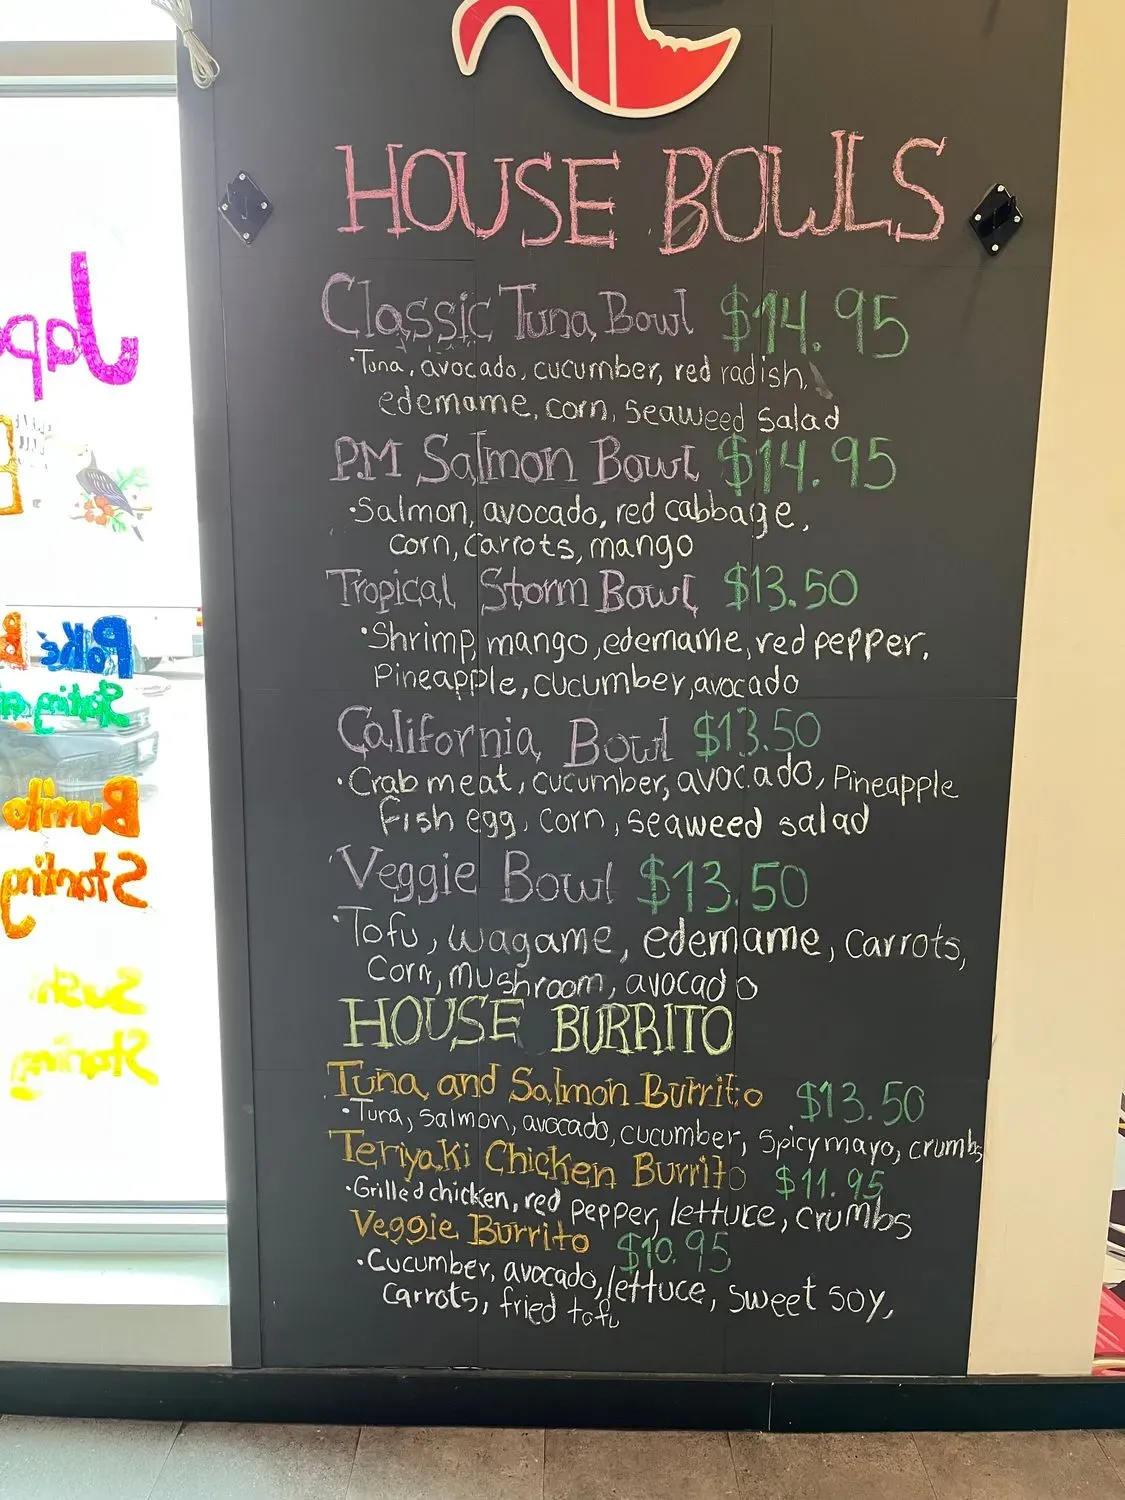 HOUSE BOWLS
Classic Tuna Bowl $14.95
•Tuna, avocado, cucumber, red radish,
edemame, corn, seaweed salad
PM Salmon Bowl $14.95
•Salmon, avocado, red cabbage,
corn, carrots, mango
Tropical Storm Bowl $13.50
•Shrimp, mango, edemame, red pepper,
Pineapple, cucumber, avocado
California Bowl $13.50
•Crab meat, cucumber, avocado, Pineapple
fish egg, corn, seaweed salad
Veggie Bowl $13.50
•Tofu, wagame, edemame, carrots,
Corn, mushroom, avocado
HOUSE BURRITO
Tuna and Salmon Burrito $13.50
•Tuna, salmon, avocado, cucumber, spicy mayo, crumbs
Teriyaki Chicken Burrito $11.95
•Grilled chicken, red pepper, lettuce, crumbs
Veggie Burrito $10.95
•Cucumber, avocado, lettuce, sweet soy,
carrots, fried tofu
Japa
Poké B
Starting at
Burrito
Starting
Sushi
Starting